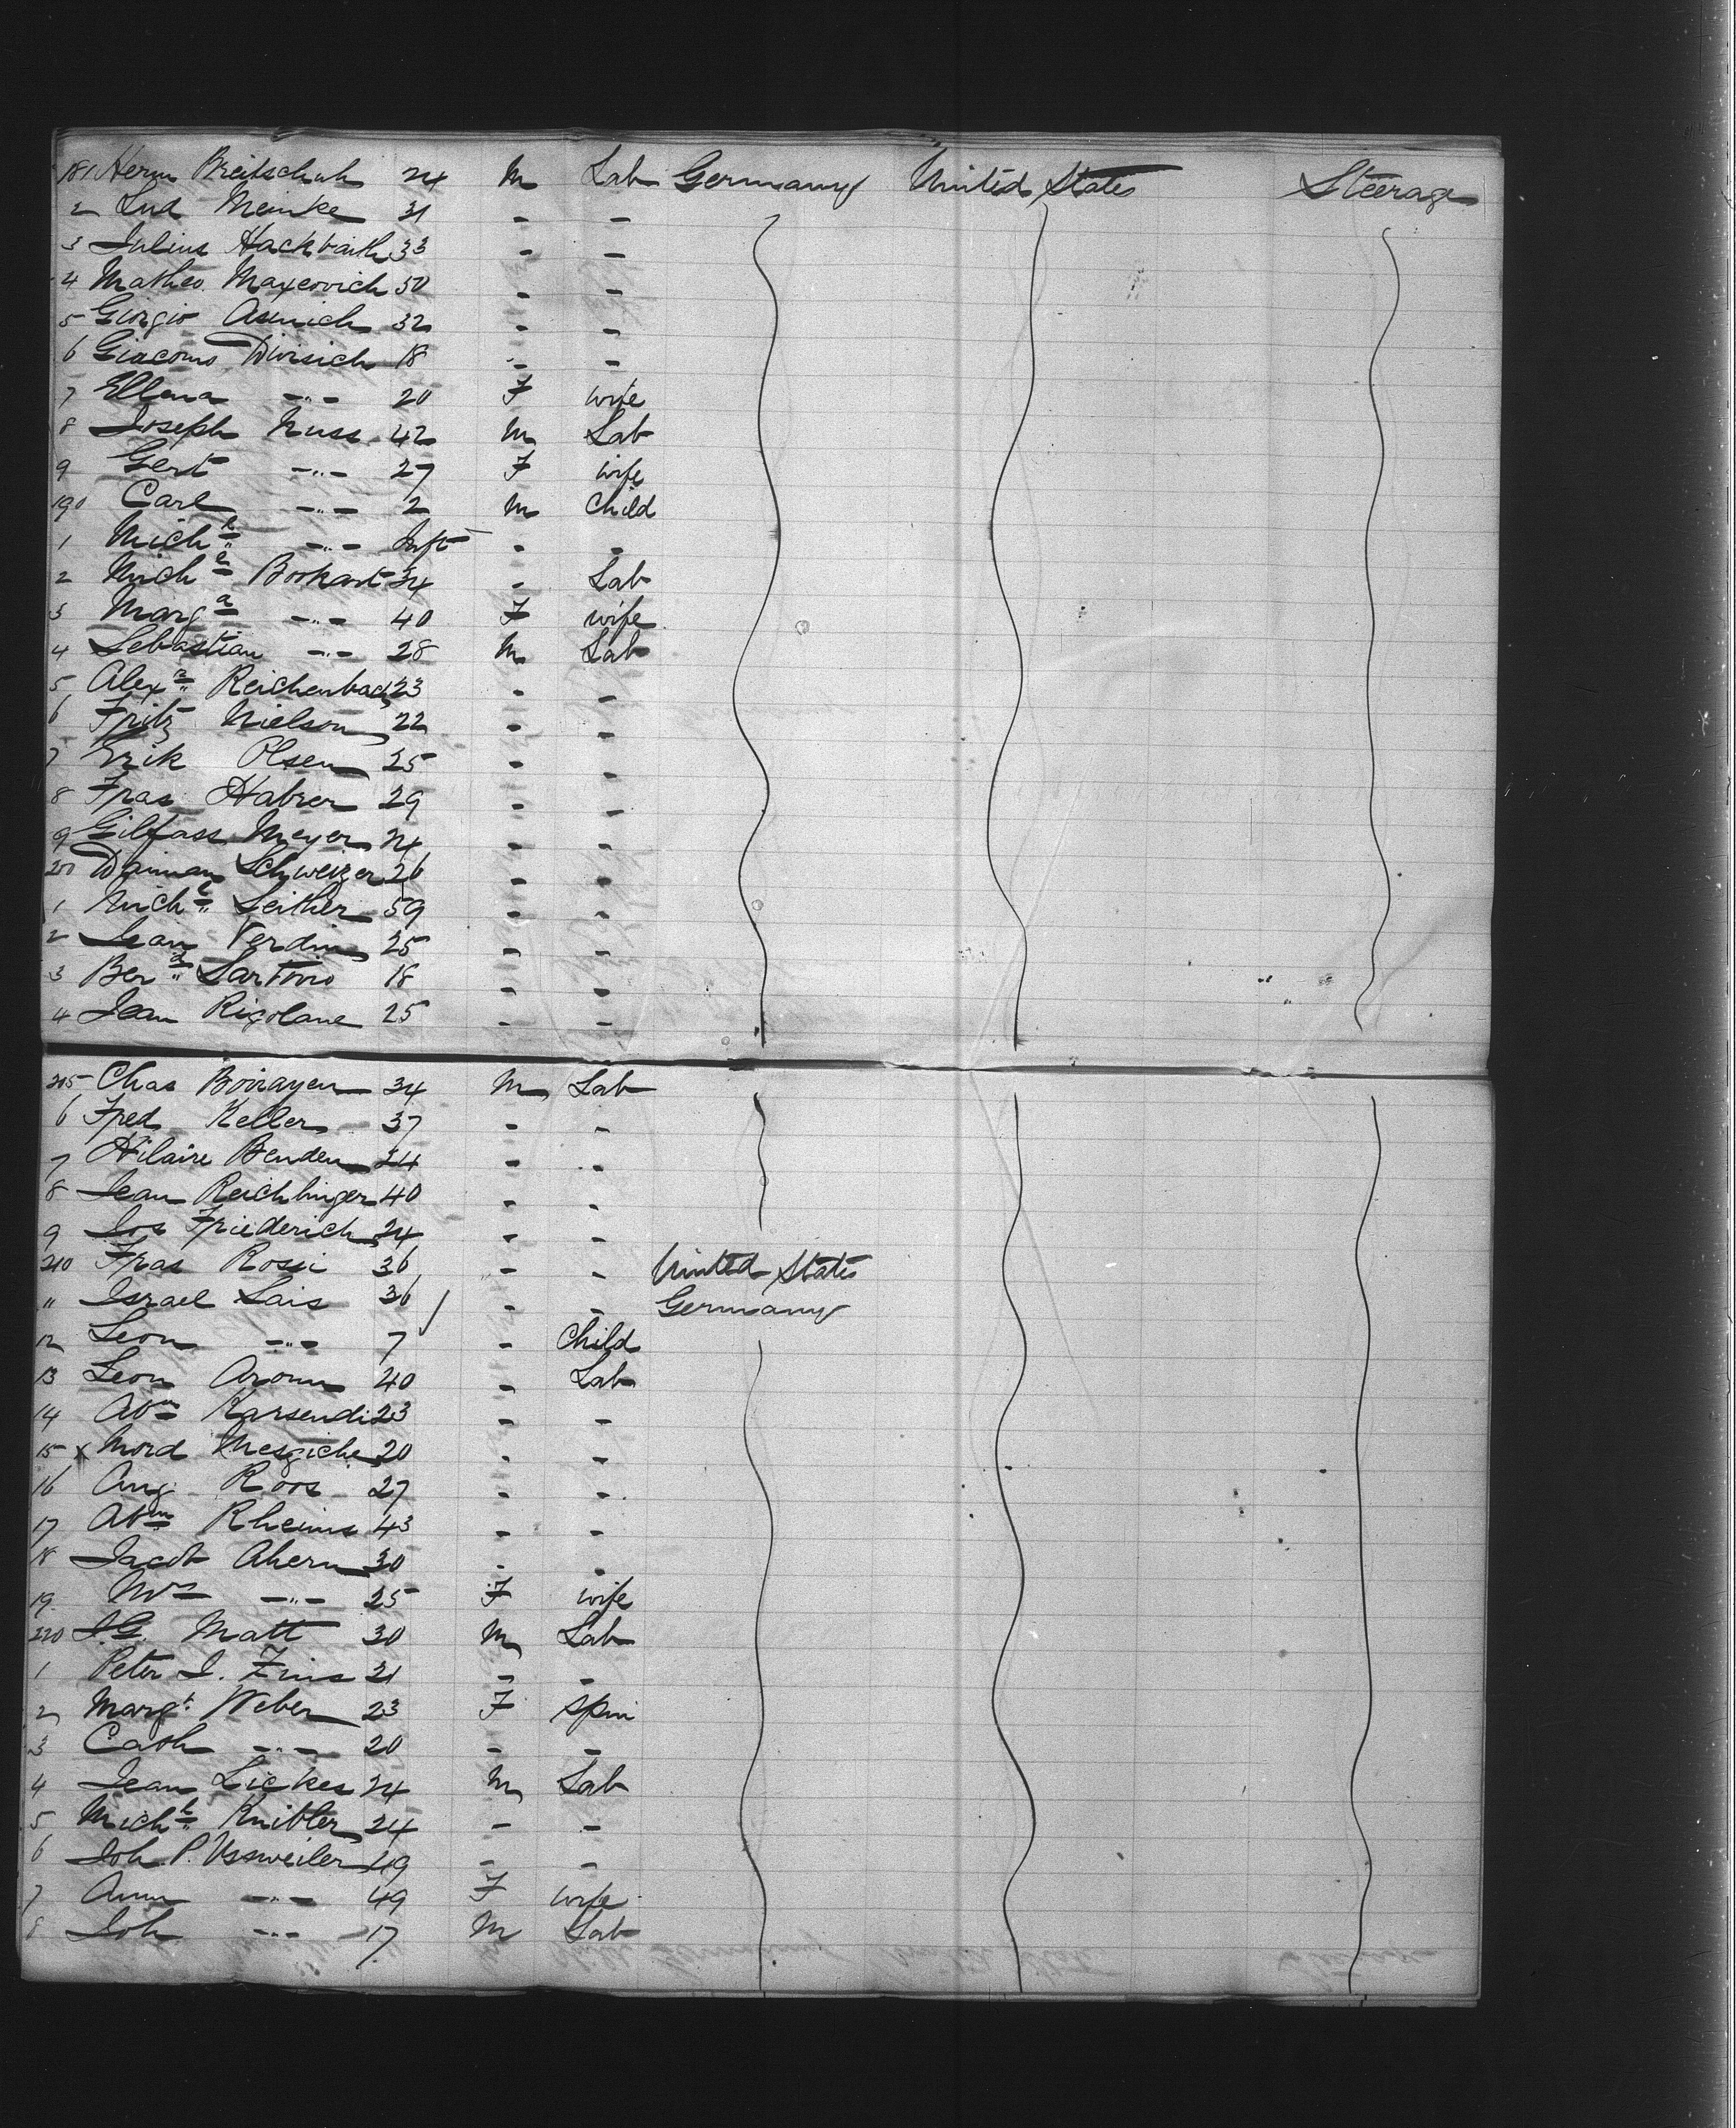 181 Herm Breitschuh 24 M Lab Germany United States Steerage
2 Lud Meinke 31 - -
3 Julius Hackbarth 33 - -
4 Matheo Maxcovich 50 - -
5 Giorgio Asinich 32 - -
6 Giacomo Divisich 18 - -
7 Ellena -"- 20 F wife
8 Joseph Nuss 42 M Lab
9 Gert -"- 27 F wife
190 Carl -"- 2 M Child
1 Michl -"- Inft - -
2 Michl Borhart 34 - Lab
3 Marga -"- 40 F wife
4 Sebastian -"- 28 M Lab
5 Alexr Reichenbach 23 - -
6 Fritz Nielson 22 - -
7 Erik Olsen 25 - -
8 Fras Habrer 29 - -
9 Gilfass Meyer 24 - -
200 Daiman Schweizer 26 - -
1 Michl Seither 59 - -
2 Jean Verdin 25 - -
3 Berd Sartorio 18 - -
4 Jean Rigolane 25 - -
205 Chas Boirayen 34 M Lab
6 Fred Keller 37 - -
7 Hilaire Benden 24 - -
8 Jean Reichlinger 40 - -
9 Jos Friederich 24 - -
210 Fras Rosii 36 - - United States
" Israel Lais 36 - - Germany
12 Leon -"- 7 - Child
13 Leon Aronn 40 - Lab
14 Abm Karsendi 23 - -
15 x Mord Mesgiche 20 - -
16 Aug Roos 27 - -
17 Abm Rheims 43 - -
18 Jacob Ahern 30 - -
19 Mrs -"- 25 F wife
220 J.G. Matt 30 M Lab
1 Peter J. Zins 21 - -
2 Margt Weber 23 F Spin
3 Cath -"- 20 - -
4 Jean Lickes 24 M Lab
5 Michl Knibler 24 - -
6 Joh. P. Ussweiler 49 - -
7 Ann -"- 49 F wife
8 Joh -"- 17 M Lab